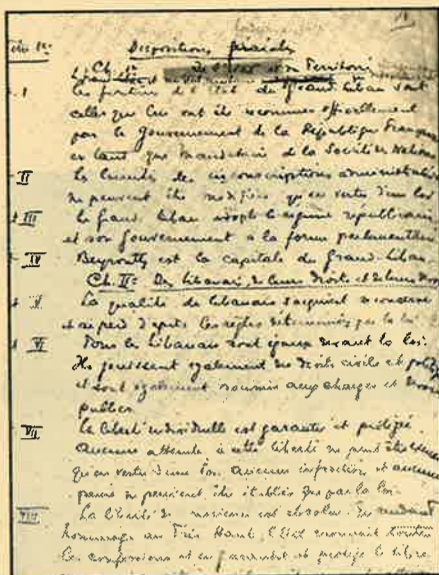 Titre Ier Dispositions
Ch. Ier De l'Etat Territoire
I Les frontières de l'Etat du Grand Liban sont
celles qui lui ont été reconnues officiellement
par le Gouvernement de la République Française
en tant que mandataire de la Société des Nations
II Les limites des circonscriptions administratives
ne peuvent être modifiées qu'en vertu d'une loi
III Le Grand Liban adopte le régime républicain
et son Gouvernement a la forme parlementaire
IV Beyrouth est la capitale du Grand-Liban.
Ch. II: Des libanais, de leurs droits et de leurs devoirs
V La qualité de libanais s'acquiert se conserve
et se perd d'après les règles déterminées par la loi
VI Tous les libanais sont égaux devant la loi.
Ils jouissent également des droits civils et
et sont également soumis aux charges et devoirs
publics
VII La liberté individuelle est garantie et protégée
Aucune atteinte à cette liberté ne peut être
qu'en vertu d'une loi. Aucune infraction et aucune
peine ne peuvent être établies que par la loi.
VIII La liberté de conscience est absolue. En rendant
hommage au Très Haut, l'Etat reconnaît toutes
les confessions et en garantit et protège le libre